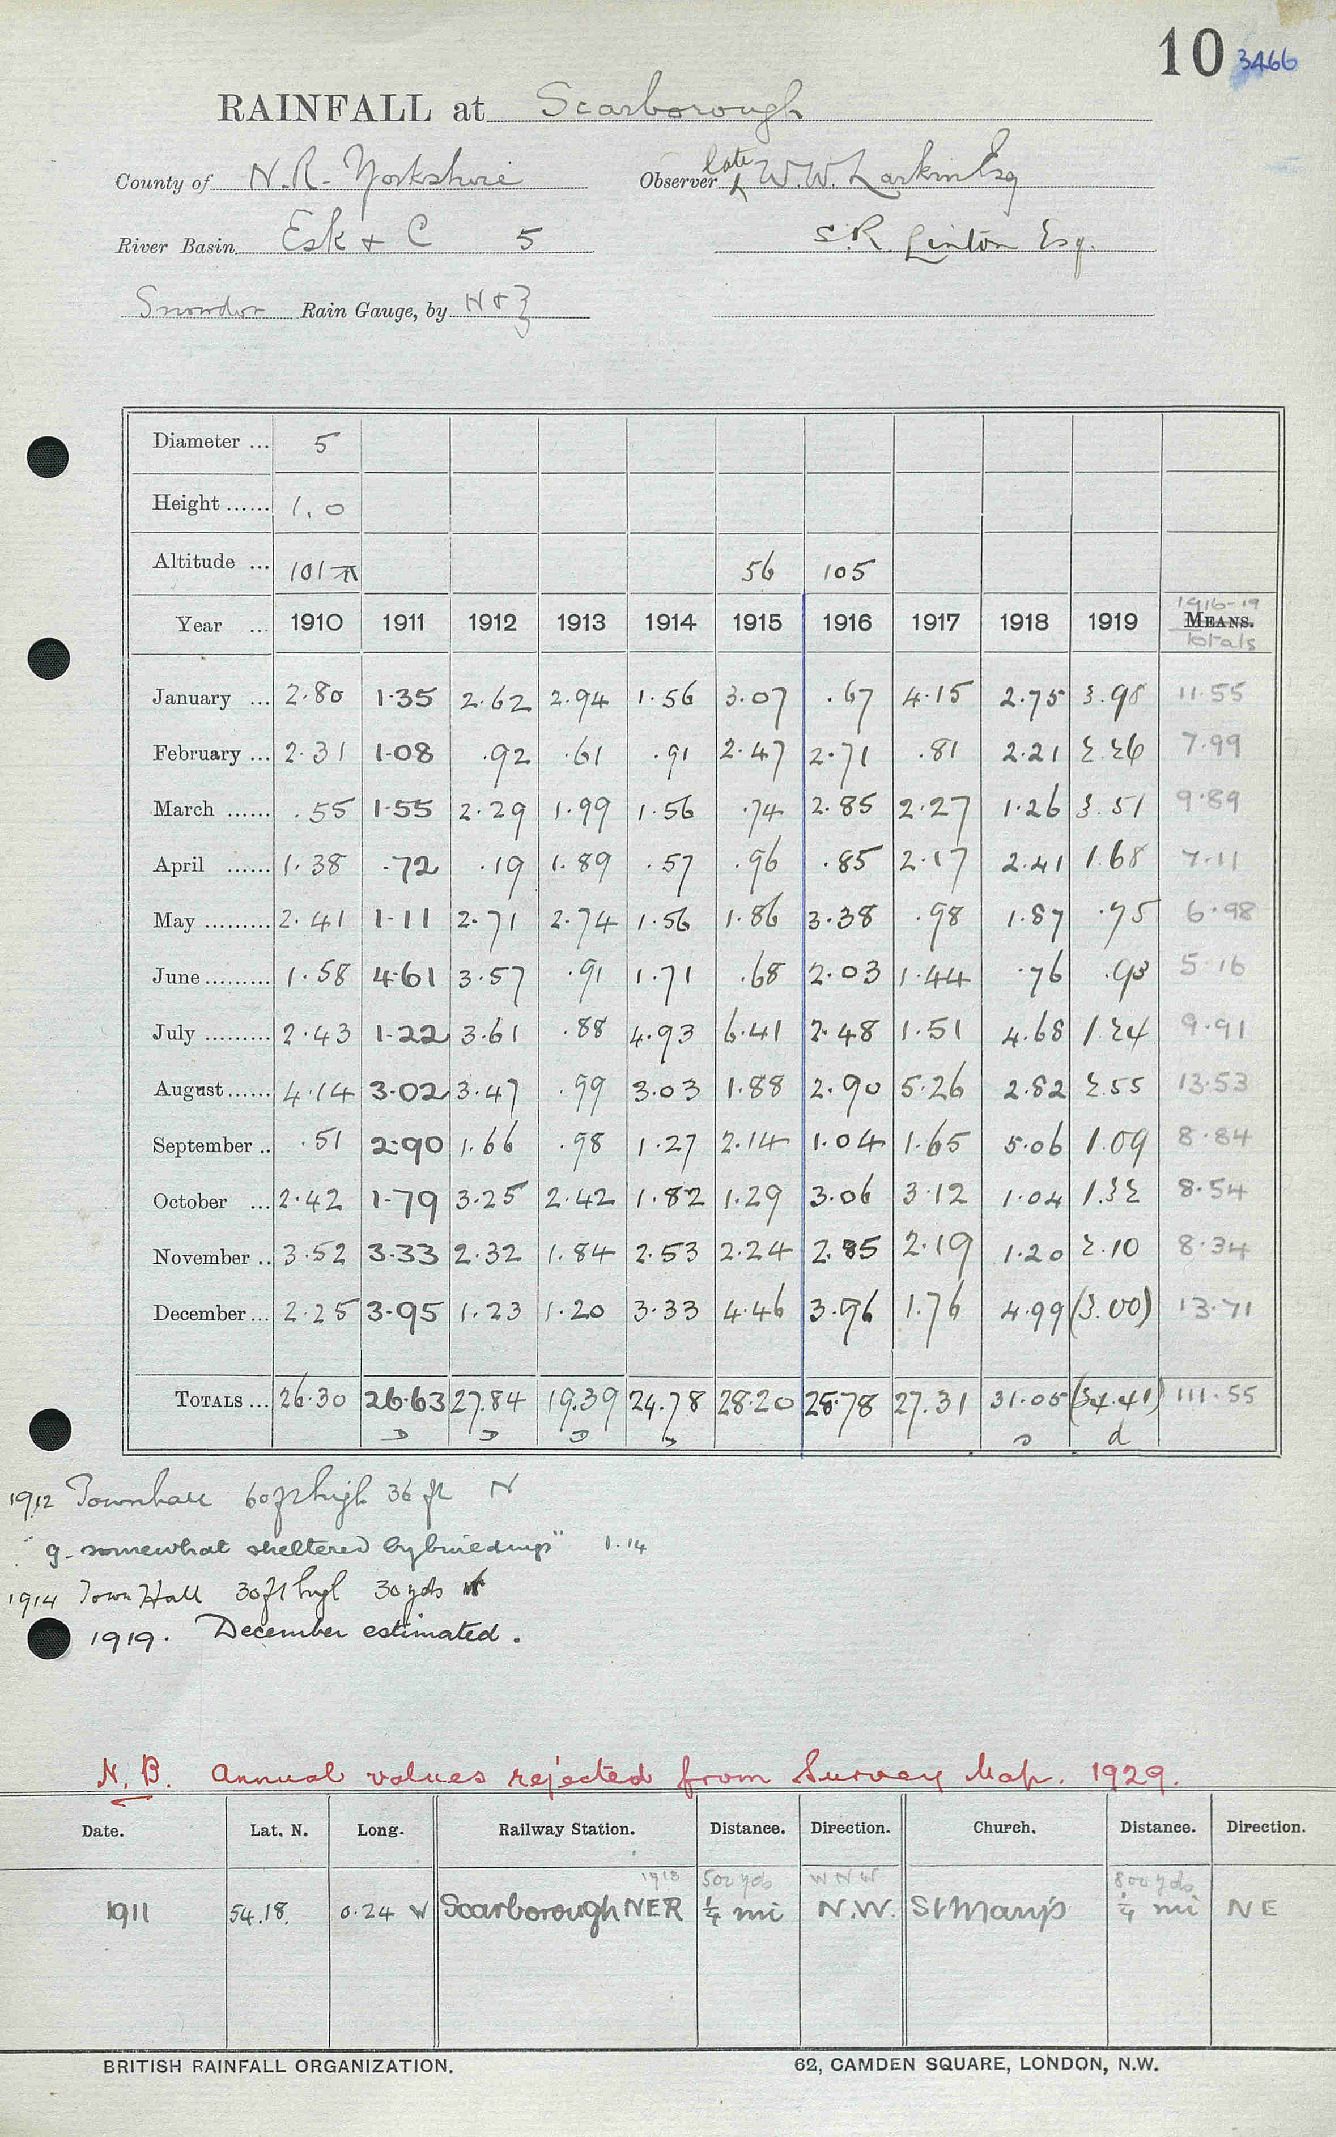 10 3466
RAINFALL at Scarborough
County of N.R. Yorkshire Observer late W.W. Larkin Esq
River Basin Esk & C 5 S.R. Linton Esq.
Snowdon Rain Gauge, by N & Z
Diameter ... 5
Height ...... 1.0
Altitude ... 101 56 105
1916-19
Year ... 1910 1911 1912 1913 1914 1915 1916 1917 1918 1919 MEANS.
Totals
January ... 2.80 1.35 2.62 2.94 1.56 3.07 .67 4.15 2.75 3.98 11.55
February ... 2.31 1.08 .92 .61 .91 2.47 2.71 .81 2.21 2.26 7.99
March ...... .55 1.55 2.29 1.99 1.56 .74 2.85 2.27 1.26 3.51 9.89
April ...... 1.38 .72 .19 1.89 .57 .96 .85 2.17 2.41 1.68 7.11
May ......... 2.41 1.11 2.71 2.74 1.56 1.86 3.38 .98 1.87 .75 6.98
June ......... 1.58 4.61 3.57 .91 1.71 .68 2.03 1.44 .76 .93 5.16
July ......... 2.43 1.22 3.61 .88 4.93 6.41 2.48 1.51 4.68 1.24 9.91
August ...... 4.14 3.02 3.47 .99 3.03 1.88 2.90 5.26 2.82 2.55 13.53
September .. .51 2.90 1.66 .98 1.27 2.14 1.04 1.65 5.06 1.09 8.84
October ... 2.42 1.79 3.25 2.42 1.82 1.29 3.06 3.12 1.04 1.32 8.54
November .. 3.52 3.33 2.32 1.84 2.53 2.24 2.85 2.19 1.20 2.10 8.34
December ... 2.25 3.95 1.23 1.20 3.33 4.46 3.96 1.76 4.99 (3.00) 13.71
TOTALS ... 26.30 26.63 27.84 19.39 24.78 28.20 28.78 27.31 31.05 (24.41) 111.55
d
1912 Townhall 60ft high 36 ft N
" g. somewhat sheltered by buildings" 1.14
1914 Town Hall 30ft high 30 yds
1919. December estimated.
N.B. Annual values rejected from Survey Map. 1929.
Date. Lat. N. Long. Railway Station. Distance. Direction. Church. Distance. Direction.
1913 500 yds WNW 800 yds
1911 54.18. 0.24 W Scarborough NER ¼ mi N.W. St Mary's ¼ mi NE
BRITISH RAINFALL ORGANIZATION. 62, CAMDEN SQUARE, LONDON, N.W.